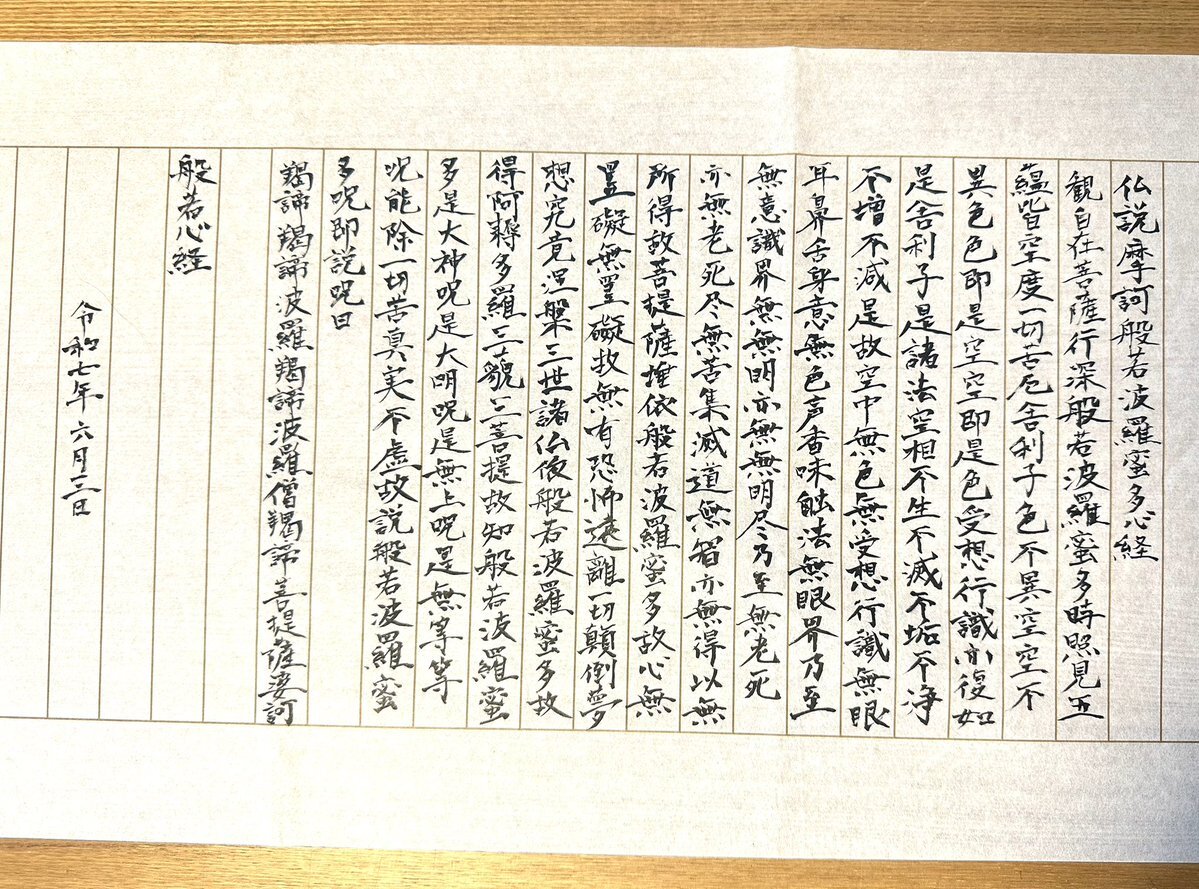 仏説摩訶般若波羅蜜多心経
観自在菩薩行深般若波羅蜜多時照見五
蘊皆空度一切苦厄舎利子色不異空空不
異色色即是空空即是色受想行識亦復如
是舎利子是諸法空相不生不滅不垢不浄
不増不減是故空中無色無受想行識無眼
耳鼻舌身意無色声香味触法無眼界乃至
無意識界無無明亦無無明尽乃至無老死
亦無老死尽無苦集滅道無智亦無得以無
所得故菩提薩埵依般若波羅蜜多故心無
罣礙無罣礙故無有恐怖遠離一切顛倒夢
想究竟涅槃三世諸仏依般若波羅蜜多故
得阿耨多羅三藐三菩提故知般若波羅蜜
多是大神呪是大明呪是無上呪是無等等
呪能除一切苦真実不虚故説般若波羅蜜
多呪即説呪曰
羯諦羯諦波羅羯諦波羅僧羯諦菩提薩婆訶
般若心経
令和七年六月三日